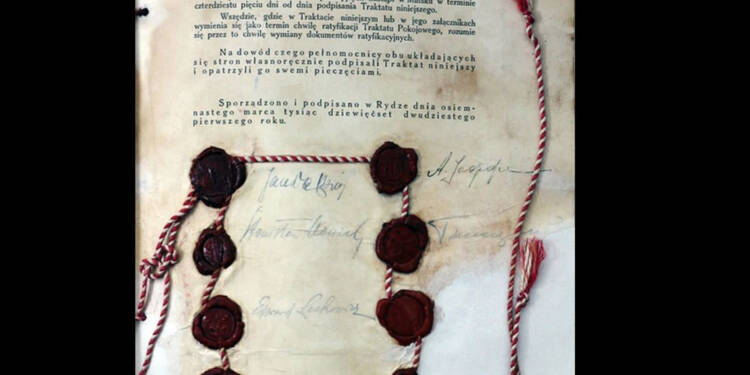 czterdziestu pięciu dni od dnia podpisania Traktatu niniejszego.
Wszędzie, gdzie w Traktacie niniejszym lub w jego załącznikach
wymienia się jako termin chwilę ratyfikacji Traktatu Pokojowego, rozumie
się przez to chwilę wymiany dokumentów ratyfikacyjnych.
Na dowód czego pełnomocnicy obu układających
się stron własnoręcznie podpisali Traktat niniejszy
i opatrzyli go swemi pieczęciami.
Sporządzono i podpisano w Rydze dnia osiem-
nastego marca tysiąc dziewięćset dwudziestego
pierwszego roku.
Edward Lechowicz